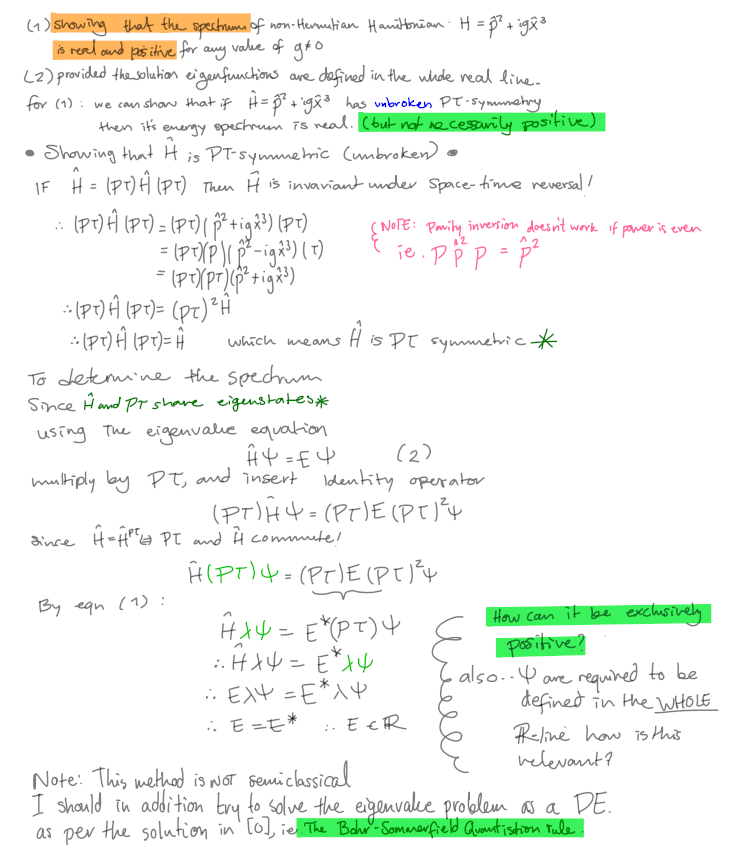 (1) showing that the spectrum of non-Hermitian Hamiltonian. H = p̂² + igx̂³
is real and positive for any value of g≠0
(2) provided the solution eigenfunctions are defined in the whole real line.
for (1): we can show that if Ĥ = p̂² + igx̂³ has unbroken PT-symmetry
then it's energy spectrum is real. (but not necessarily positive)
• Showing that Ĥ is PT-symmetric (unbroken) •
IF Ĥ = (PT)Ĥ(PT) Then Ĥ is invariant under Space-time reversal!
∴ (PT)Ĥ(PT) = (PT)(p̂² + igx̂³)(PT)
= (PT)(P)(p̂² - igx̂³)(T)
= (PT)(PT)(p̂² + igx̂³)
{NOTE: Parity inversion doesn't work if power is even
ie. P p̂² P = p̂²
∴ (PT)Ĥ(PT) = (PT)²Ĥ
∴ (PT)Ĥ(PT) = Ĥ which means Ĥ is PT symmetric *
To determine the spectrum
Since Ĥ and PT share eigenstates*
using the eigenvalue equation
Ĥψ = Eψ (2)
multiply by PT, and insert identity operator
(PT)Ĥψ = (PT)E(PT)²ψ
since Ĥ = Ĥᴾᵀ ⇔ PT and Ĥ commute!
Ĥ(PT)ψ = (PT)E(PT)²ψ
By eqn (1):
Ĥλψ = E*(PT)ψ
∴ Ĥλψ = E*λψ
∴ Eλψ = E*λψ
∴ E = E* ∴ E ∈ ℝ
How can it be exclusively
positive?
also.. ψ are required to be
defined in the WHOLE
ℝ-line how is this
relevant?
Note: This method is NOT semiclassical
I should in addition try to solve the eigenvalue problem as a DE.
as per the solution in [0], ie. The Bohr-Sommerfield Quantistion rule.